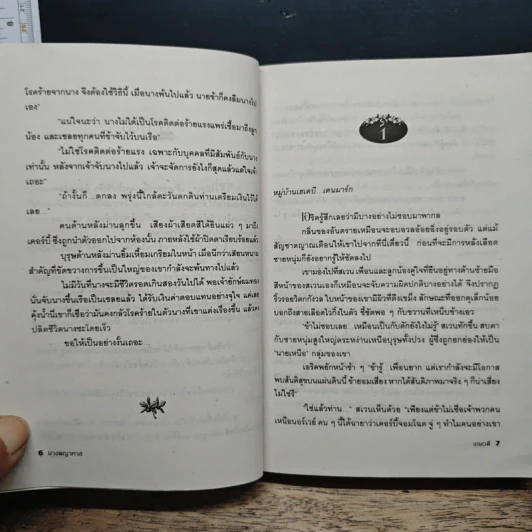 โรคร้ายจากนาง จึงต้องใช้วิธีนี้ เมื่อนางพ้นไปแล้ว นายข้าก็คงลืมนางไป
เอง"
"แน่ใจนะว่า นางไม่ได้เป็นโรคติดต่อร้ายแรงแพร่เชื้อมาถึงลูก
น้อง และเชลยทุกคนที่ข้าจับไว้บนเรือ"
"ไม่ใช่โรคติดต่อร้ายแรง เฉพาะกับบุคคลที่มีสัมพันธ์กับนาง
เท่านั้น หลังจากเจ้าจับนางไปแล้ว เจ้าจะจัดการยังไงก็สุดแล้วแต่ใจเจ้า
เถอะ"
"ถ้างั้นก็...ตกลง พรุ่งนี้ใกล้ตะวันตกดินท่านเตรียมเงินไว้ได้
เลย..."
คนด้านหลังม่านลุกขึ้น เสียงผ้าเสียดสีได้ยินแผ่ว ๆ มาถึง
เคอร์บี้ ซึ่งถูกนำตัวออกไปจากห้องนั้น ภายหลังใช้ผ้าปิดตาเรียบร้อยแล้ว
บุรุษด้านหลังม่านยิ้มเหี้ยมเกรียมในหน้า เมื่อนึกว่าเสี้ยนหนาม
สำคัญที่ขัดขวางการขึ้นเป็นใหญ่ของเขากำลังจะพ้นทางไปแล้ว
ไม่มีวันที่นางจะมีชีวิตรอดเกินสองวันไปได้ พอเจ้ายักษ์ผมทอง
นั่นจับนางขึ้นเรือเป็นเชลยแล้ว ได้รับเงินค่าตอบแทนอย่างจุใจ แค่เสี้ยว
คุ้งน้ำนี่เขาก็เชื่อว่ามันคงกลัวโรคร้ายในตัวนางที่เขาแต่งเรื่องขึ้น แล้วคง
ปลิดชีวิตนางซะโดยเร็ว
ขอให้เป็นอย่างงั้นเถอะ...
6 บ่วงพญาทาส
1
หมู่บ้านเฮเดบี...เดนมาร์ก
เอริครู้สึกเลยว่ามีบางอย่างไม่ชอบมาพากล
กลิ่นของอันตรายเหมือนจะอบอวลอ้อยอิ่งอยู่รอบตัว แต่แม้
สัญชาตญาณเตือนให้เขาไปจากที่นี่เดี๋ยวนี้ ก่อนที่จะมีการหลั่งเลือด
ชายหนุ่มก็ยังอยากรู้ให้ชัดลงไป
เขามองไปที่สเวน เพื่อนและลูกน้องคู่ใจที่ยืนอยู่ทางด้านซ้ายมือ
สีหน้าของสเวนเองก็เหมือนจะจับความผิดปกติบางอย่างได้ จึงปรากฏ
ริ้วรอยวิตกกังวล ใบหน้าของเขามีผิวที่ตึงเขม็ง ลักษณะที่ออกดุเล็กน้อย
บอกถึงสายเลือดไวกิ้งในตัว ซึ่ชัดพอ ๆ กับขวานที่เหน็บข้างเอว
"ข้าไม่ชอบเลย เหมือนเป็นกับดักยังไงไม่รู้" สเวนทักขึ้น สบตา
กับชายหนุ่มสูงใหญ่ตระหง่านเหนือบุรุษทั้งปวง ผู้ซึ่งถูกยกย่องให้เป็น
"นายเหนือ" กลุ่มของเขา
เอริคพยักหน้าช้า ๆ "ข้ารู้...เพื่อนยาก แต่เรากำลังจะมีโอกาส
พบสันติสุขบนแผ่นดินนี้ ข้ายอมเสี่ยง หากได้สันติภาพมาจริง ๆ ก็น่าเสี่ยง
ไม่ใช่รึ"
"ใช่แล้วท่าน..." สเวนเห็นด้วย "เพียงแต่ข้าไม่เชื่อเจ้าพวกคน
เหนือนอร์เวย์ คน ๆ นี้ได้ฉายาว่าเคอร์บี้จอมโฉด จู่ ๆ ทำไมคนอย่างเขา
เกษวดี 7